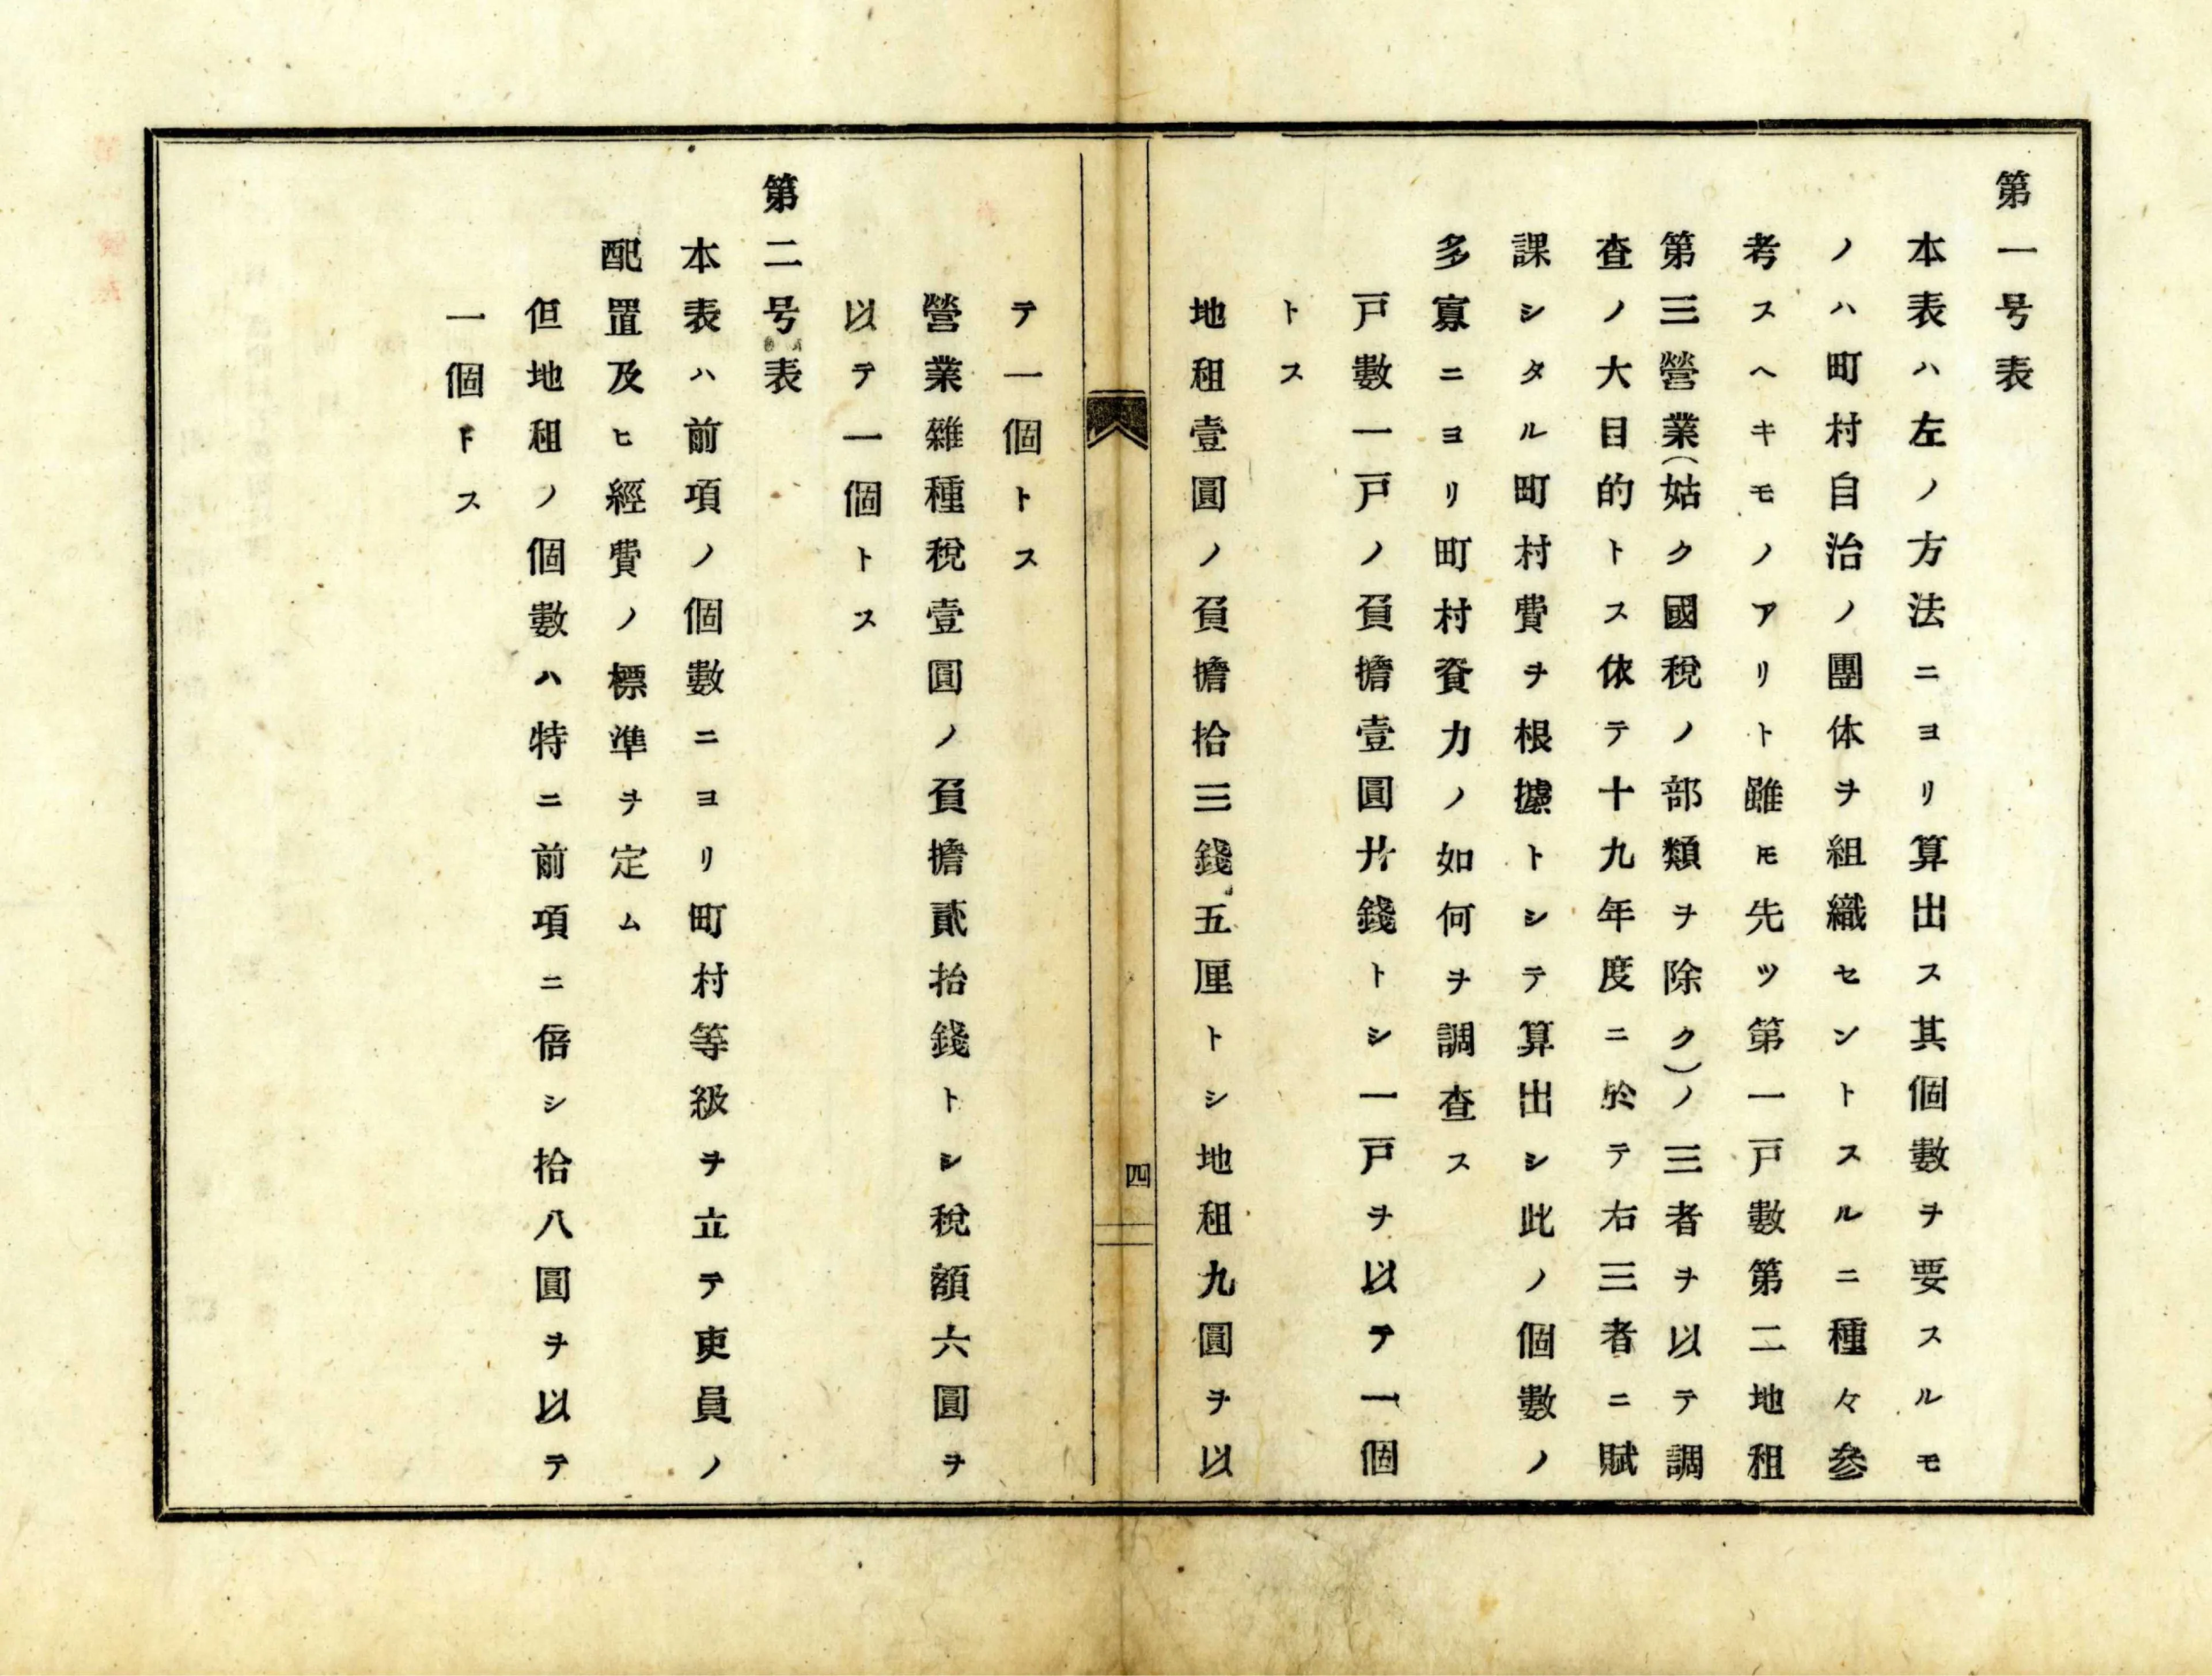 第一号表
本表ハ左ノ方法ニヨリ算出ス其個數ヲ要スルモ
ノハ町村自治ノ團体ヲ組織セントスルニ種々參
考スヘキモノアリト雖𪜈先ツ第一戸數第二地租
第三營業(姑ク國稅ノ部類ヲ除ク)ノ三者ヲ以テ調
査ノ大目的トス依テ十九年度ニ於テ右三者ニ賦
課シタル町村費ヲ根據トシテ算出シ此ノ個數ノ
多寡ニヨリ町村資力ノ如何ヲ調査ス
戸數一戸ノ負擔壹圓廿錢トシ一戸ヲ以テ一個
トス
地租壹圓ノ負擔拾三錢五厘トシ地租九圓ヲ以
四
テ一個トス
營業雜種稅壹圓ノ負擔貳拾錢トシ稅額六圓ヲ
以テ一個トス
第二号表
本表ハ前項ノ個數ニヨリ町村等級ヲ立テ吏員ノ
配置及ヒ經費ノ標準ヲ定ム
但地租ノ個數ハ特ニ前項ニ倍シ拾八圓ヲ以テ
一個トス